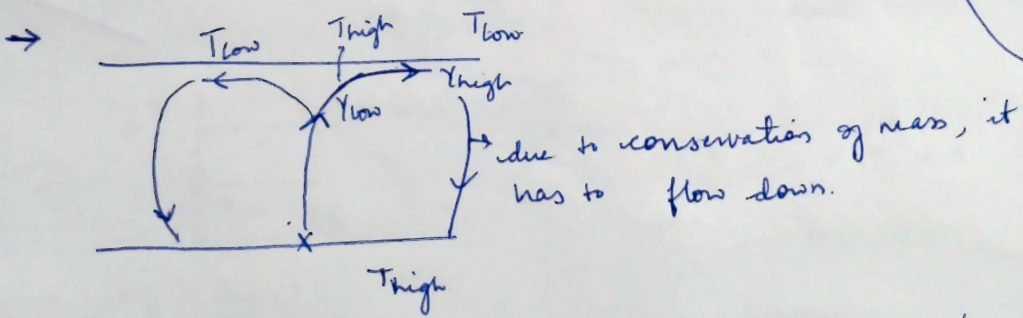 →
T Low T high T Low
γ high
γ low
→ due to conservation of mass, it
has to flow down.
x
T high